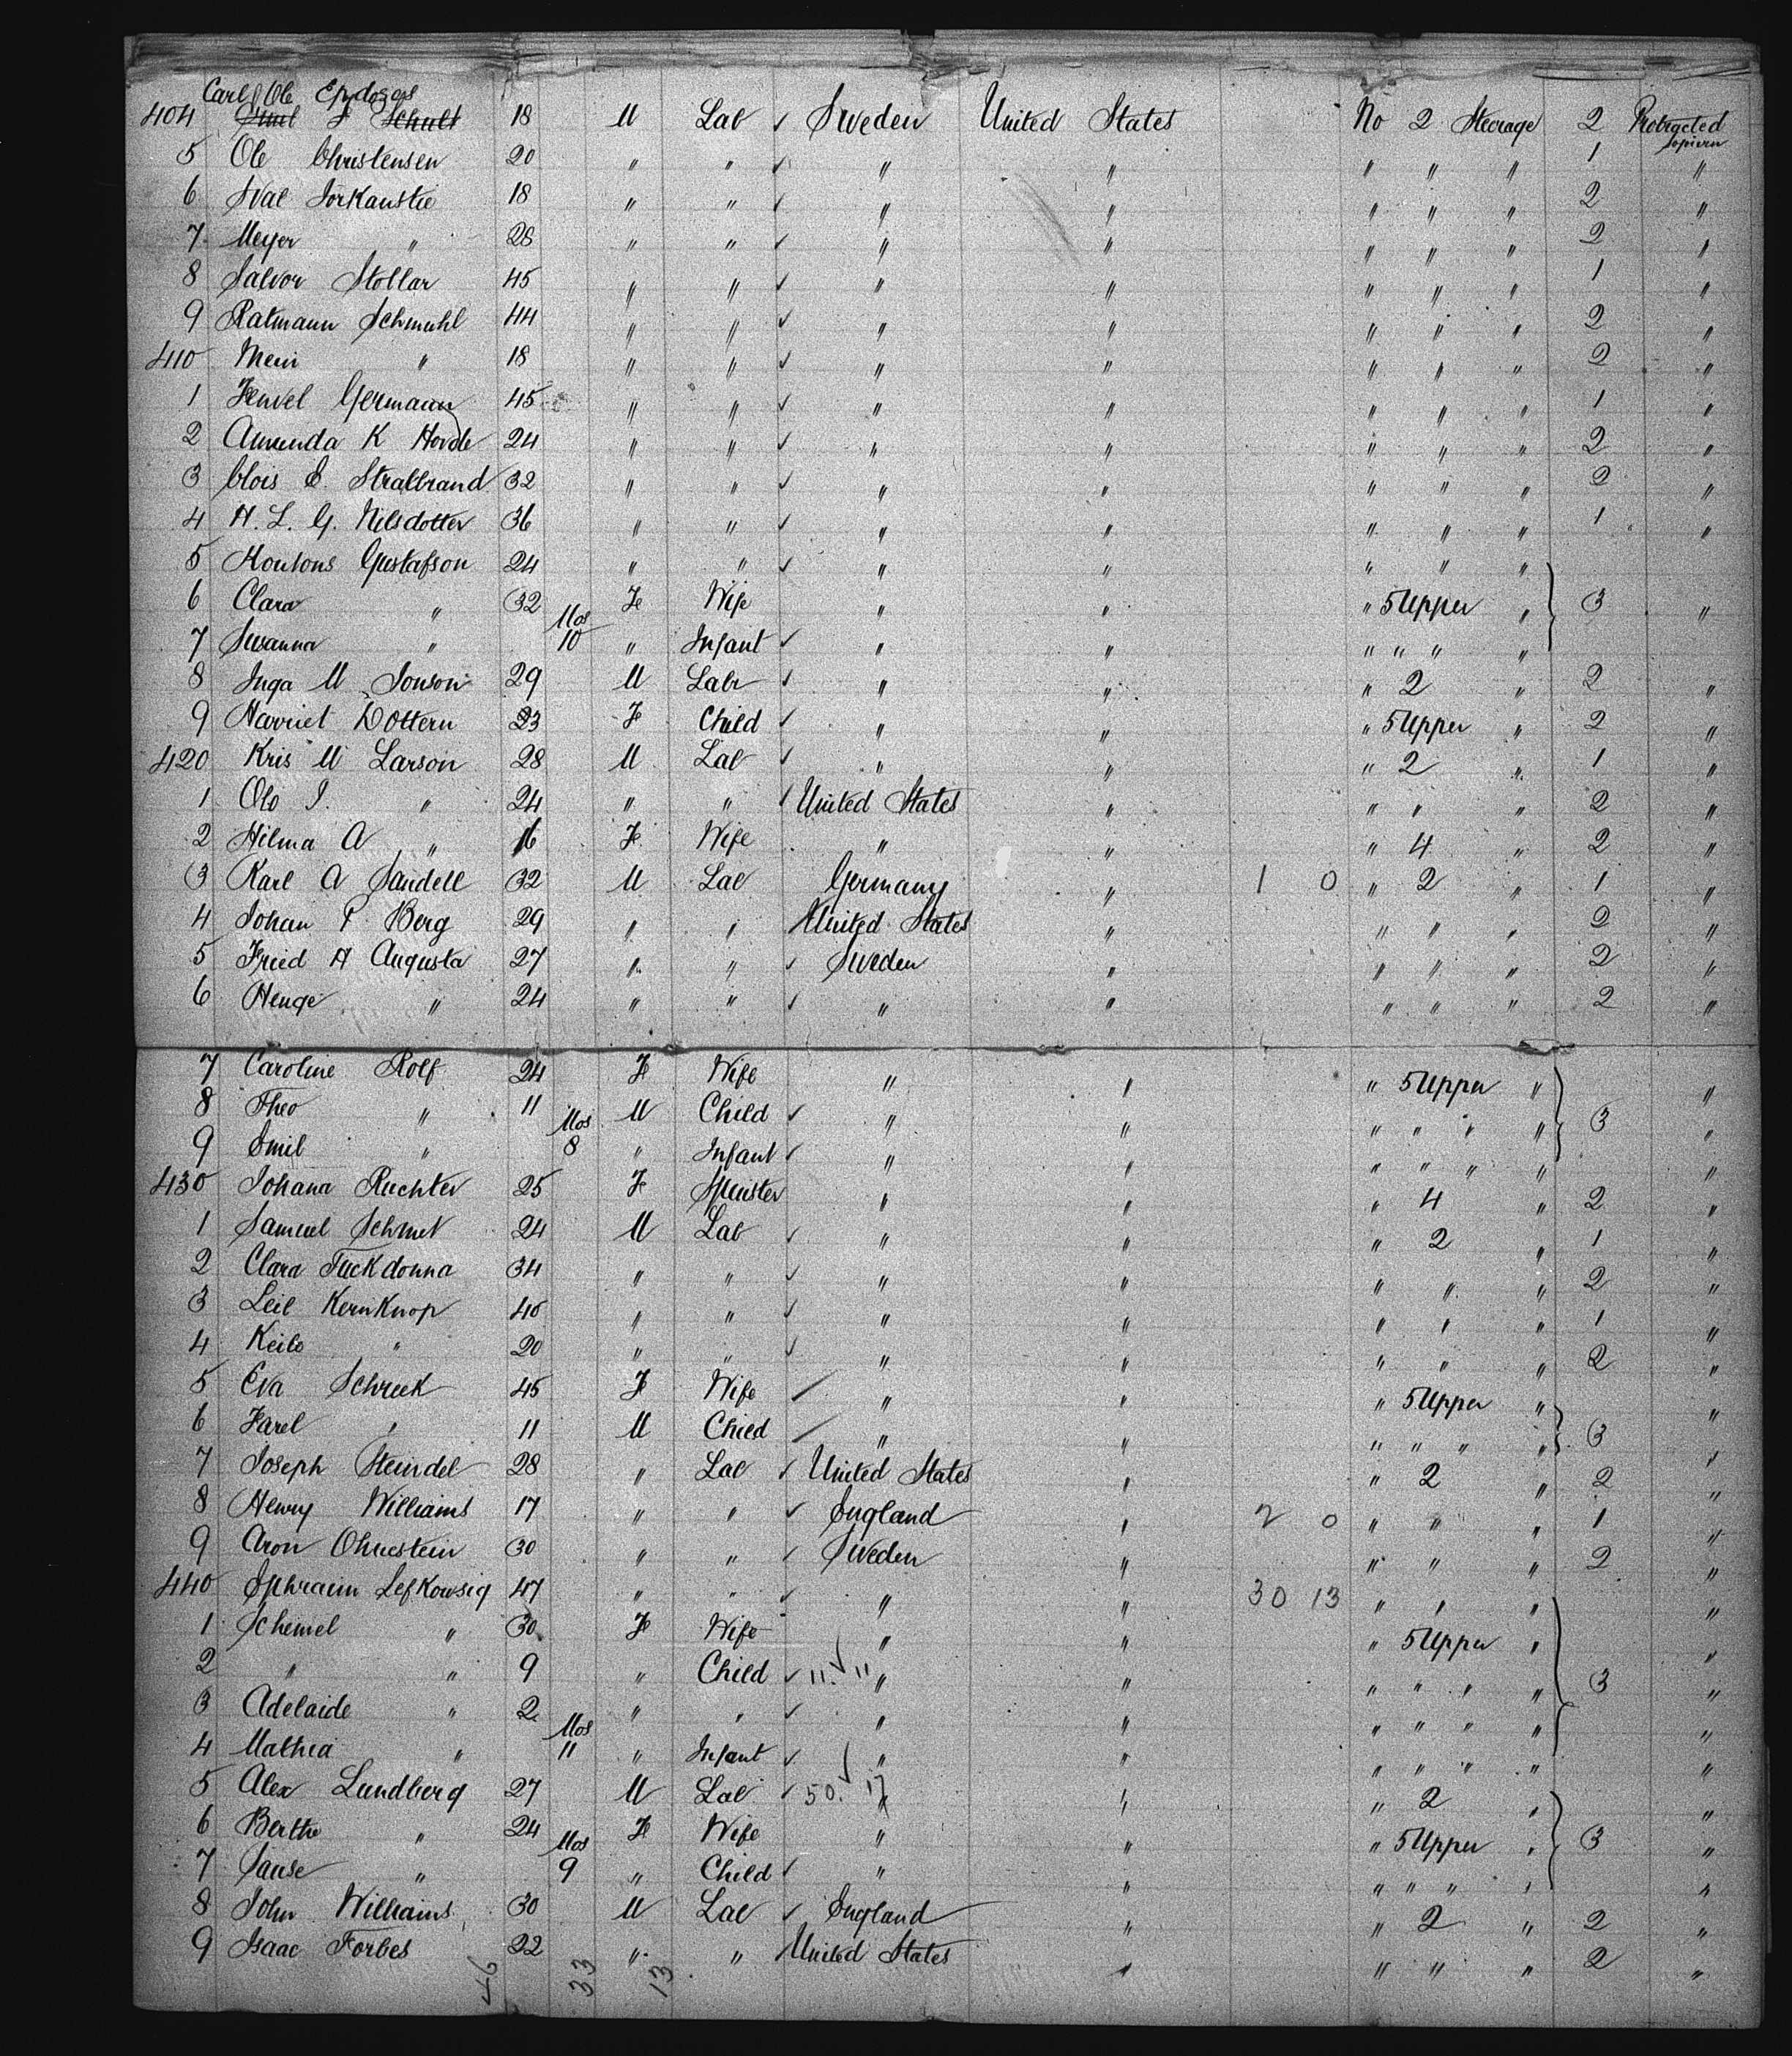 Carl Ole
404 F Schult 18 M Lab ✓ Sweden United States No 2 Steerage 2 Protracted
5 Ole Christensen 20 " " ✓ " " " " " 1 sojourn "
6 Sval 18 " " ✓ " " " " " 2 "
7 Meyer " 28 " " ✓ " " " " " 2 "
8 Salvor Stollar 45 " " ✓ " " " " " 1 "
9 Ratmann Schmuhl 44 " " ✓ " " " " " 2 "
410 Meir " 18 " " ✓ " " " " " 2 "
1 Germann 45 " " ✓ " " " " " 1 "
2 Amunda K Hovde 24 " " ✓ " " " " " 2 "
3 Stralbrand 32 " " ✓ " " " " " 2 "
4 H. L. G. Nilsdotter 36 " " ✓ " " " " " 1 "
5 Gustafson 24 " " ✓ " " " " "
6 Clara " 32 Fe Wife " " " 5 Upper " 3 "
7 Susanna " Mos 10 " Infant ✓ " " " " " "
8 Inga M Jonson 29 M Labr ✓ " " " 2 " 2 "
9 Harriet Dottern 23 Fe Child ✓ " " " 5 Upper " 2 "
420 Kris M Larson 28 M Lab ✓ " " " 2 " 1 "
1 Olo I. " 24 " " ✓ United States " " " " 2 "
2 Hilma A " 16 Fe Wife " " " 4 " 2 "
3 Karl A Sandell 32 M Lab Germany " 1 0 " 2 " 1 "
4 Johan P Berg 29 " " United States " " " " 2 "
5 Fried A Augusta 27 " " ✓ Sweden " " " " 2 "
6 Henge " 24 " " ✓ " " " " " 2 "
7 Caroline Rolf 24 Fe Wife " " " 5 Upper " "
8 Theo " 11 M Child ✓ " " " " " " 3 "
9 Emil " Mos 8 " Infant ✓ " " " " " " "
430 Johana Ruchter 25 Fe Spinster " " " 4 " 2 "
1 Samuel Schmet 24 M Lab ✓ " " " 2 " 1 "
2 Clara Tuckdonna 34 " " ✓ " " " " " 2 "
3 Leil KernKnop 40 " " ✓ " " " " " 1 "
4 Keile " 20 " " ✓ " " " " " 2 "
5 Eva Schreek 45 Fe Wife ✓ " " " 5 Upper " "
6 Farel " 11 M Child ✓ " " " " " " 3 "
7 Joseph Steindel 28 " Lab ✓ United States " " 2 " 2 "
8 Henry Williams 17 " " ✓ England " 2 0 " " " 1 "
9 Aron Ohrestein 30 " " ✓ Sweden " " " " 2 "
440 Ephraim Lefkowsig 47 " " ✓ " " 30 13 " " " "
1 Schemel " 30 Fe Wife " " " 5 Upper " "
2 " " 9 " Child ✓ 11 ✓ 11 " " " " " " 3 "
3 Adelaide " 2 " " ✓ " " " " " " "
4 Mathea " Mos 11 " Infant ✓ ✓ " " " " " " "
5 Alex Lundberg 27 M Lab ✓ 50. 17 " " " 2 " "
6 Berthe " 24 Fe Wife " " " 5 Upper " 3 "
7 Sause " Mos 9 " Child ✓ " " " " " " "
8 John Williams 30 M Lab ✓ England " " 2 " 2 "
9 Isaac Forbes 22 " " United States " " " " 2 "
46 33 13